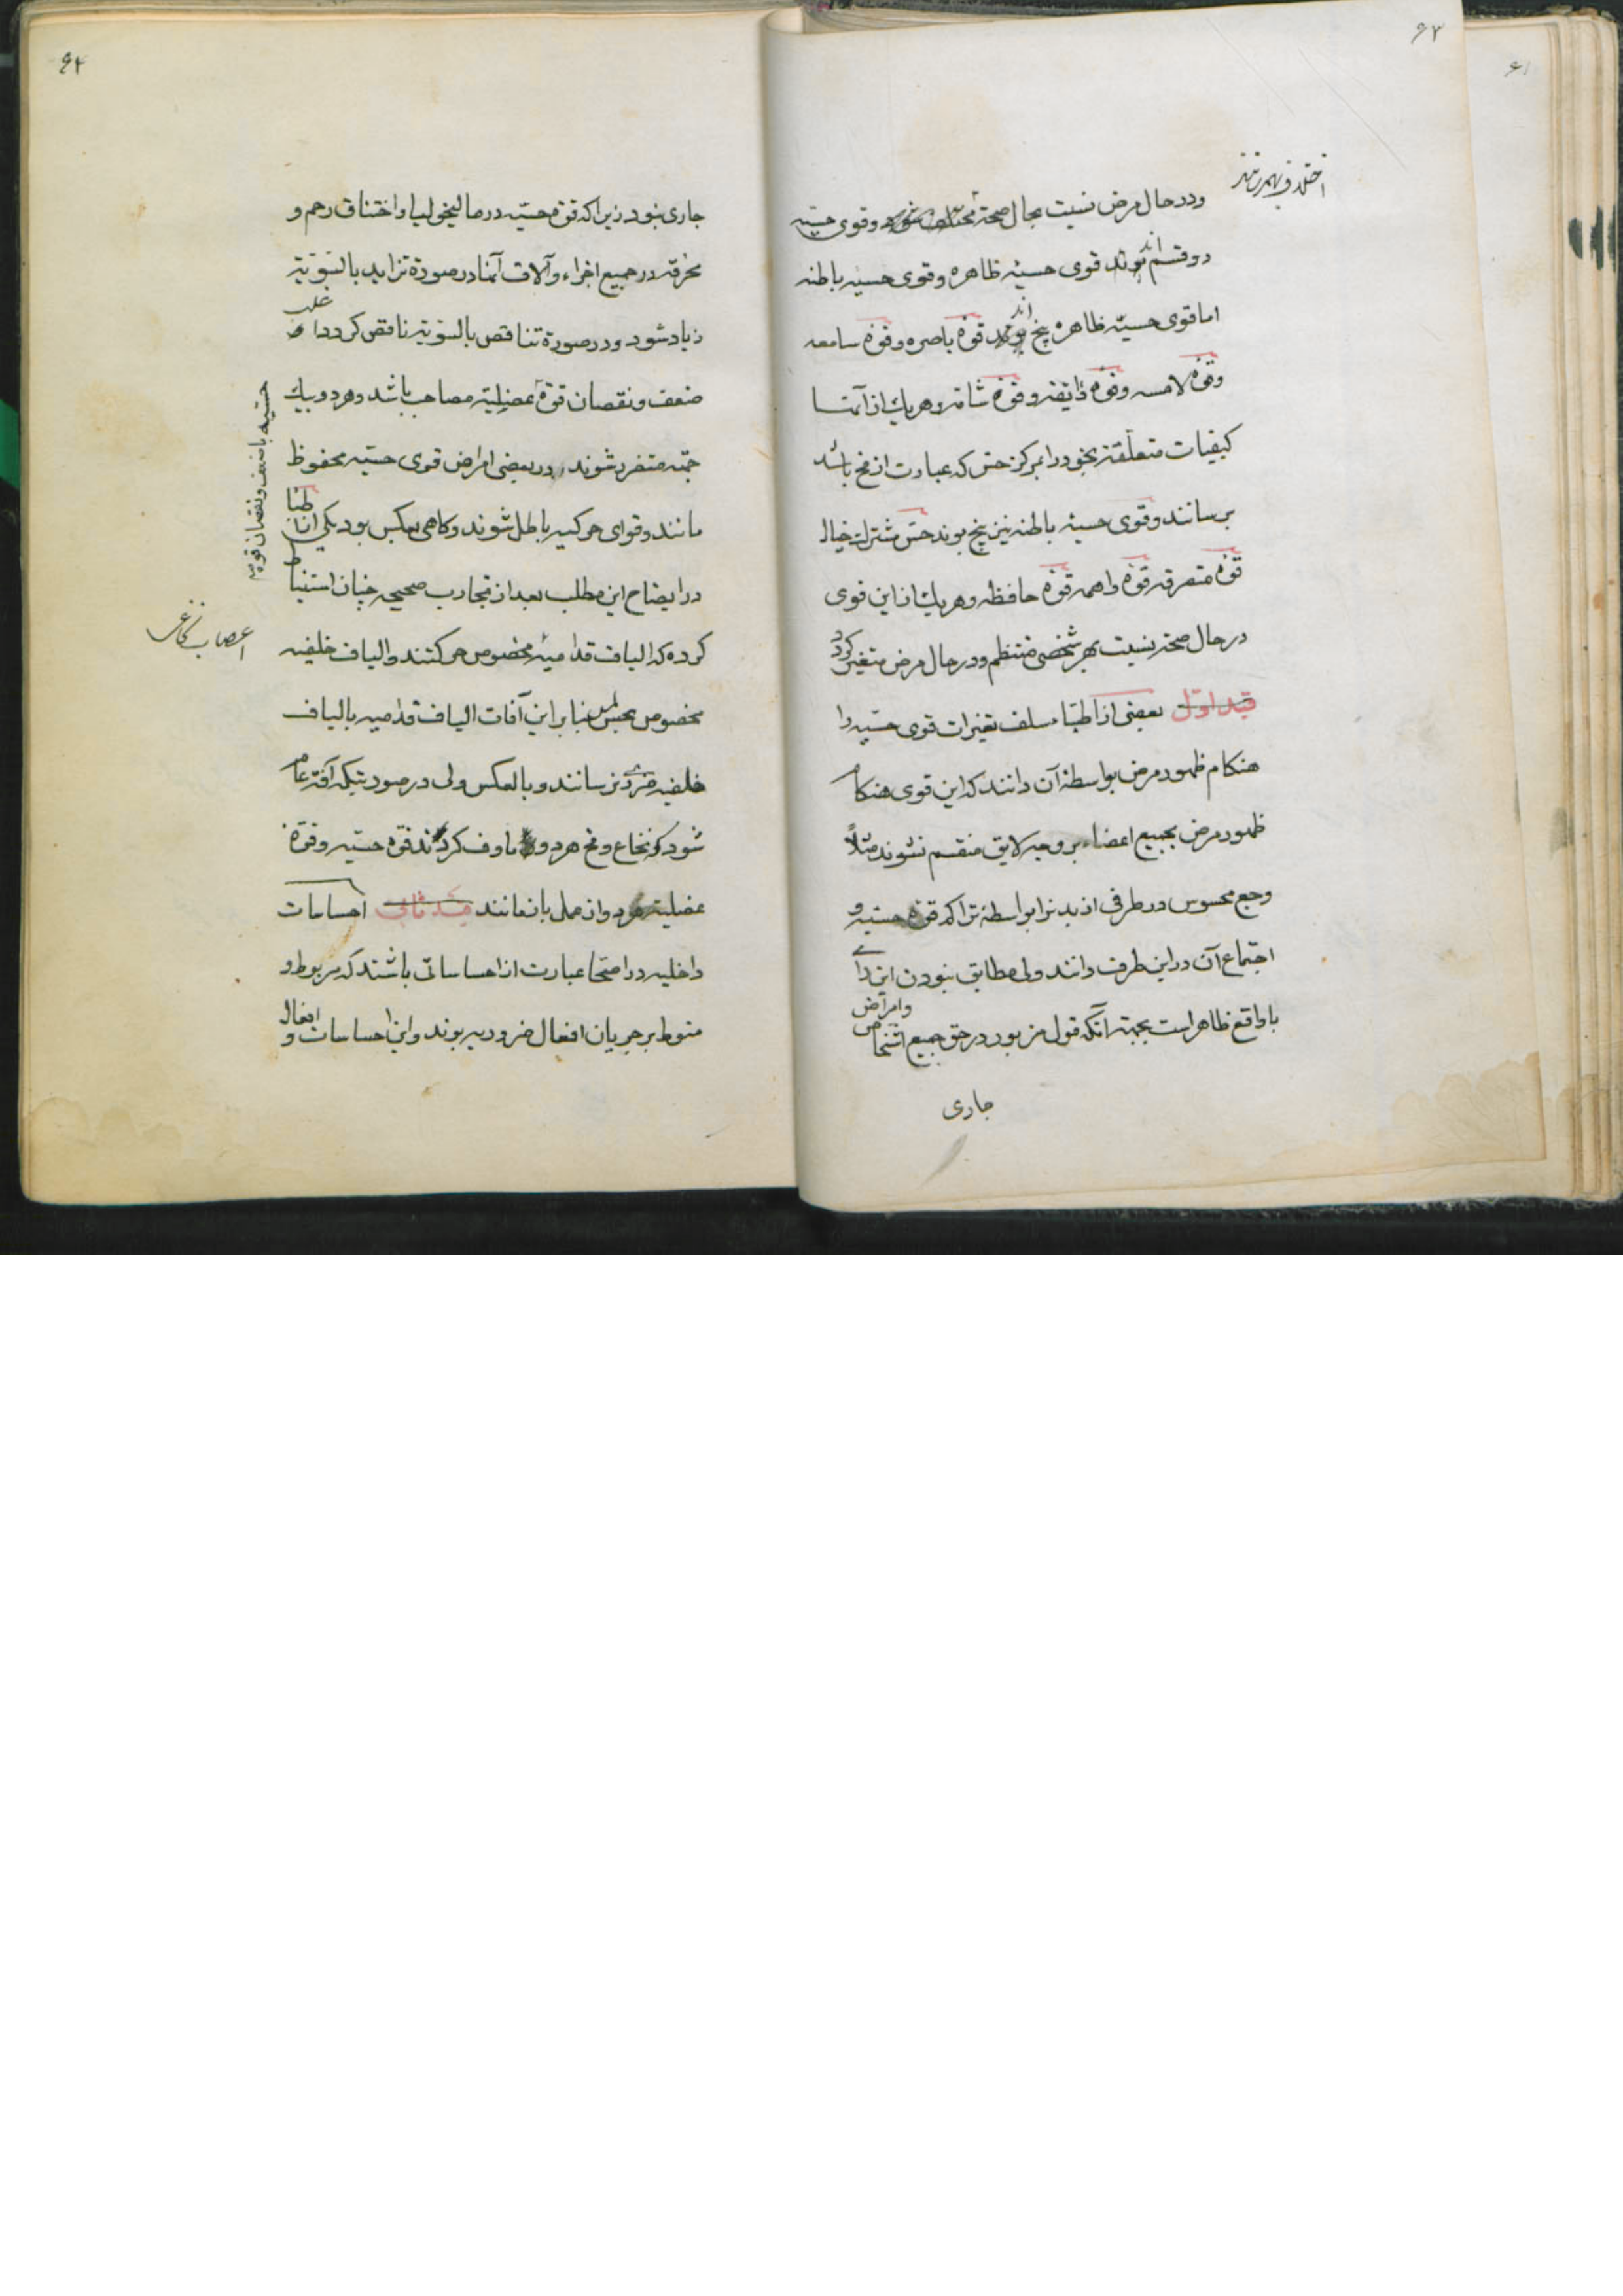 ۶۳
اختلاف بهمرسانند
ودر حال مرض نسبت بحال صحة مختلف شوند وقوی حسیّه
دو قسم‌اند قوی حسیّه ظاهره وقوی حسیّه باطنه
اما قوی حسیّه ظاهره پنج‌اند قوّهٔ باصره وقوّهٔ سامعه
وقوّهٔ لامسه وقوّهٔ ذایقه وقوّهٔ شامّه وهر یك از آنها
کیفیات متعلّقهٔ بخود را بمرکز حسّ که عبارت از مخ باشد
برسانند وقوی حسیّهٔ باطنه نیز پنج بوند حسّ مشترك خیال
قوّهٔ متصرفه قوّهٔ واهمه قوّهٔ حافظه وهر یك از این قوی
در حال صحة نسبت بهر شخصی منتظم ودر حال مرض متغیّر گردد
قید اوّل بعضی از اطبّاء سلف تغیّرات قوی حسیّه را
هنکام ظهور مرض بواسطهٔ آن دانند که این قوی هنکام
ظهور مرض بجمیع اعضاء بر وجه لایق منقسم نشوند مثلاً
وجع محسوس در طرفی از بدنرا بواسطهٔ تراکم قوّهٔ حسیّه و
اجتماع آن در این طرف دانند ولی مطابق نبودن این رأی
با واقع ظاهر است بجهة آنکه قول مزبور در حق جمیع اشخاص وامراض
جاری
۶۴
جاری نبود زیرا که قوّهٔ حسیّه در مالیخولیا واختناق رحم و
محرقه در جمیع اجزاء وآلات آنها در صورة تزاید بالسّویّة
زیاد شود ودر صورة تناقص بالسّویّة ناقص کردد اغلب
حسیّه با ضعف ونقصان قوه
ضعف ونقصان قوّهٔ عضلیّه مصاحب باشد وهر دو بیك
جهة متضرر شوند ودر بعضی امراض قوی حسیّه محفوظ
مانند وقوای حرکیه باطل شوند وکاهی بعکس بود یکی از اطبّا
در ایضاح این مطلب بعد از تجارب صحیحه چنان استنباط
اعصاب نخاعی
کرده که الیاف قدامیّهٔ مخصوص حرکتند والیاف خلفیه
مخصوص بحس لمس بنا بر این آفات الیاف قدامیه بالیاف
خلفیه ضرری نرسانند وبالعکس ولی در صورتیکه آفة عام
شود که نخاع ومخ هر دو ماوف کردند قوّه حسیّه وقوّهٔ
عضلیّه هر دو از عمل باز مانند قید ثانی احساسات
داخلیه در اصحّا عبارت از احساساتی باشند که مربوط و
منوط بر جریان افعال ضروریه بوند واین احساسات وافعال